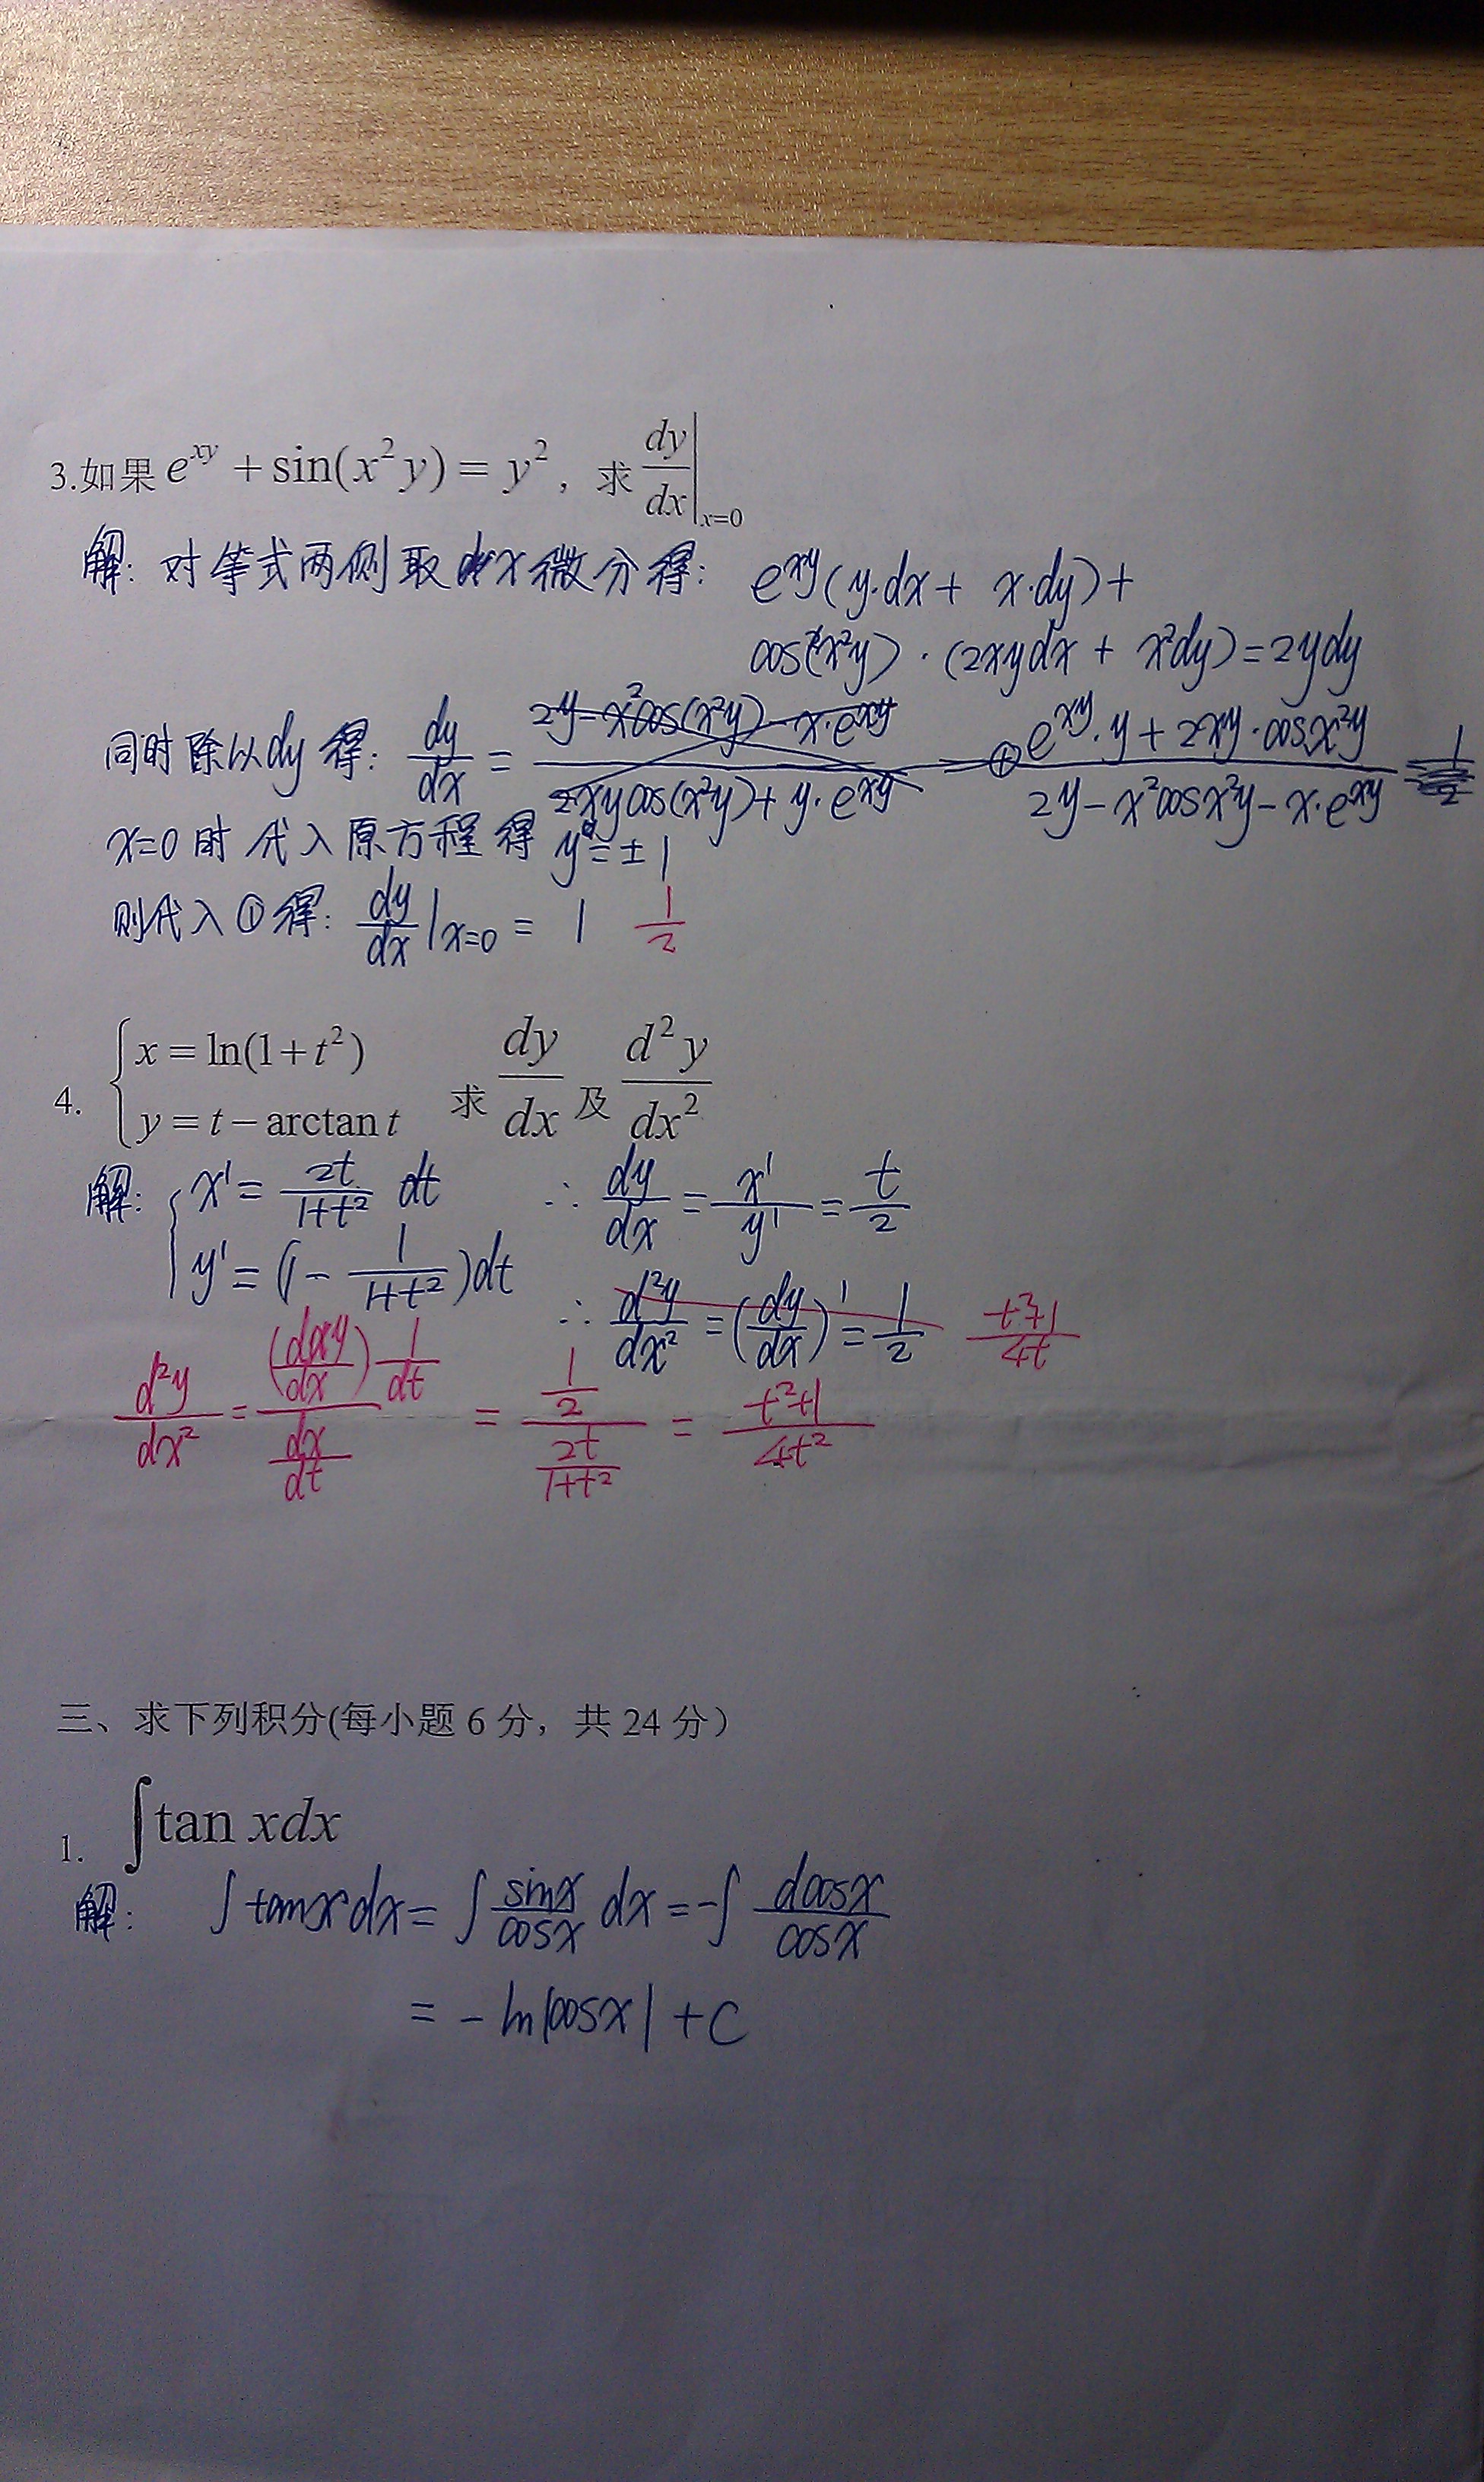 3.如果 e^{xy} + sin(x²y) = y², 求 dy/dx|_{x=0}
解: 对等式两侧取dx微分得: e^{xy}(y·dx + x·dy)+
cos(x²y)·(2xydx + x²dy)=2ydy
同时除以dy得: dy/dx = (2y-x²cos(x²y)-x·e^{xy})/(2xycos(x²y)+y·e^{xy}) = ① (e^{xy}·y+2xy·cosx²y)/(2y-x²cosx²y-x·e^{xy}) = 1/2
x=0时 代入原方程得 y=±1
则代入①得: dy/dx|_{x=0} = 1 1/2
4. { x = ln(1+t²)
y = t - arctan t 求 dy/dx 及 d²y/dx²
解: { x' = 2t/(1+t²) dt ∴ dy/dx = x'/y' = t/2
y' = (1 - 1/(1+t²))dt
∴ d²y/dx² = (dy/dx)' = 1/2 (t²+1)/4t
d²y/dx² = ((dxy/dx) 1/dt)/(dx/dt) = (1/2)/(2t/(1+t²)) = (t²+1)/4t²
三、求下列积分(每小题 6 分，共 24 分）
1. ∫tan xdx
解: ∫tanxdx = ∫ sinx/cosx dx = -∫ dcosx/cosx
= -ln|cosx| + C